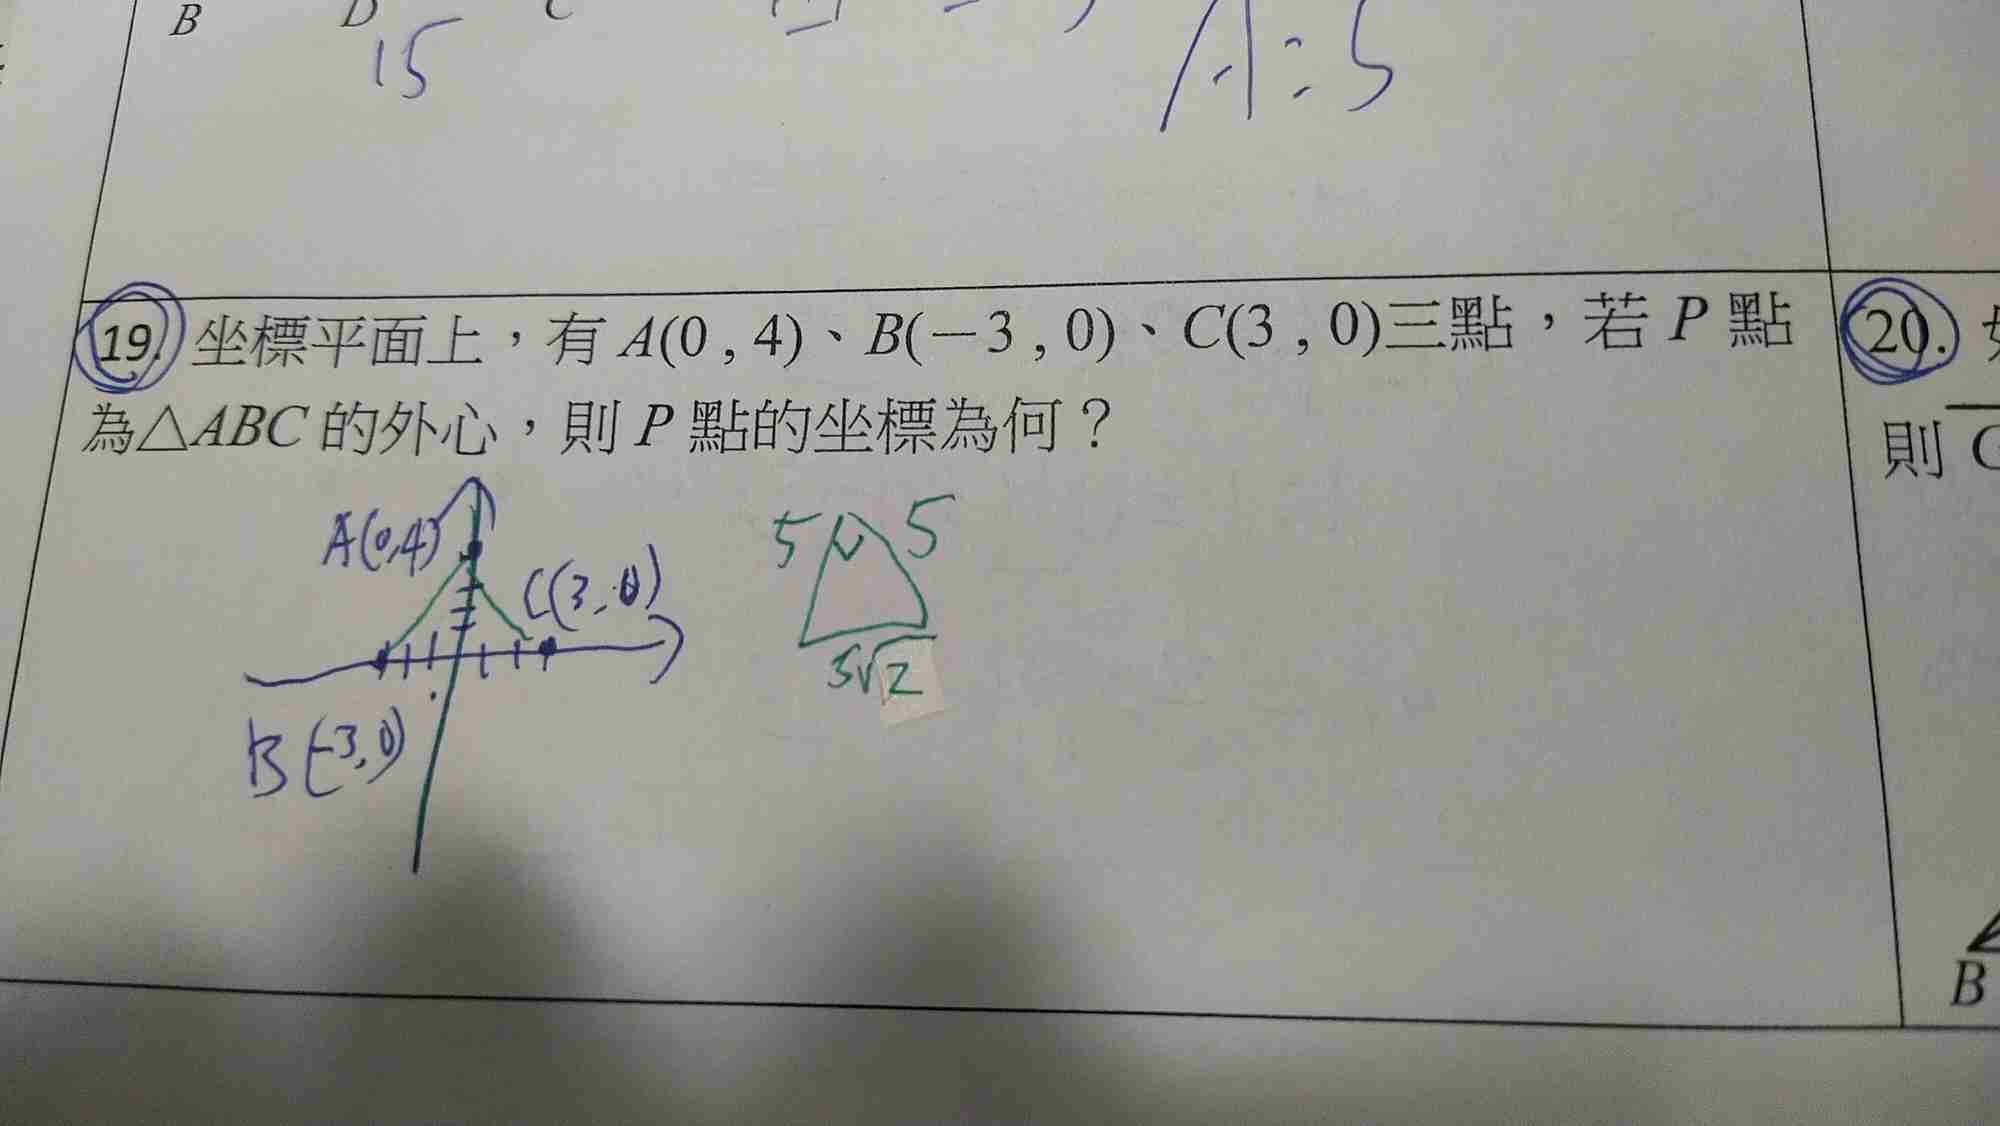 B D C
15
A:5
19. 坐標平面上，有 A(0 , 4)、B(－3 , 0)、C(3 , 0)三點，若 P 點
為△ABC 的外心，則 P 點的坐標為何？
20.
則 G
A(0,4)
C(3,0)
B(-3,0)
5 5
5√2
B